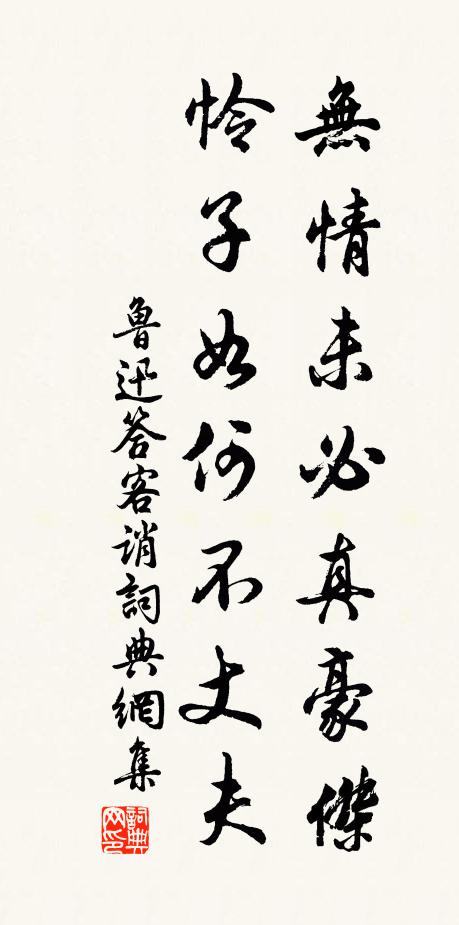 無情未必真豪傑
怜子如何不丈夫
魯迅答客誚詞典網集
詞典网印